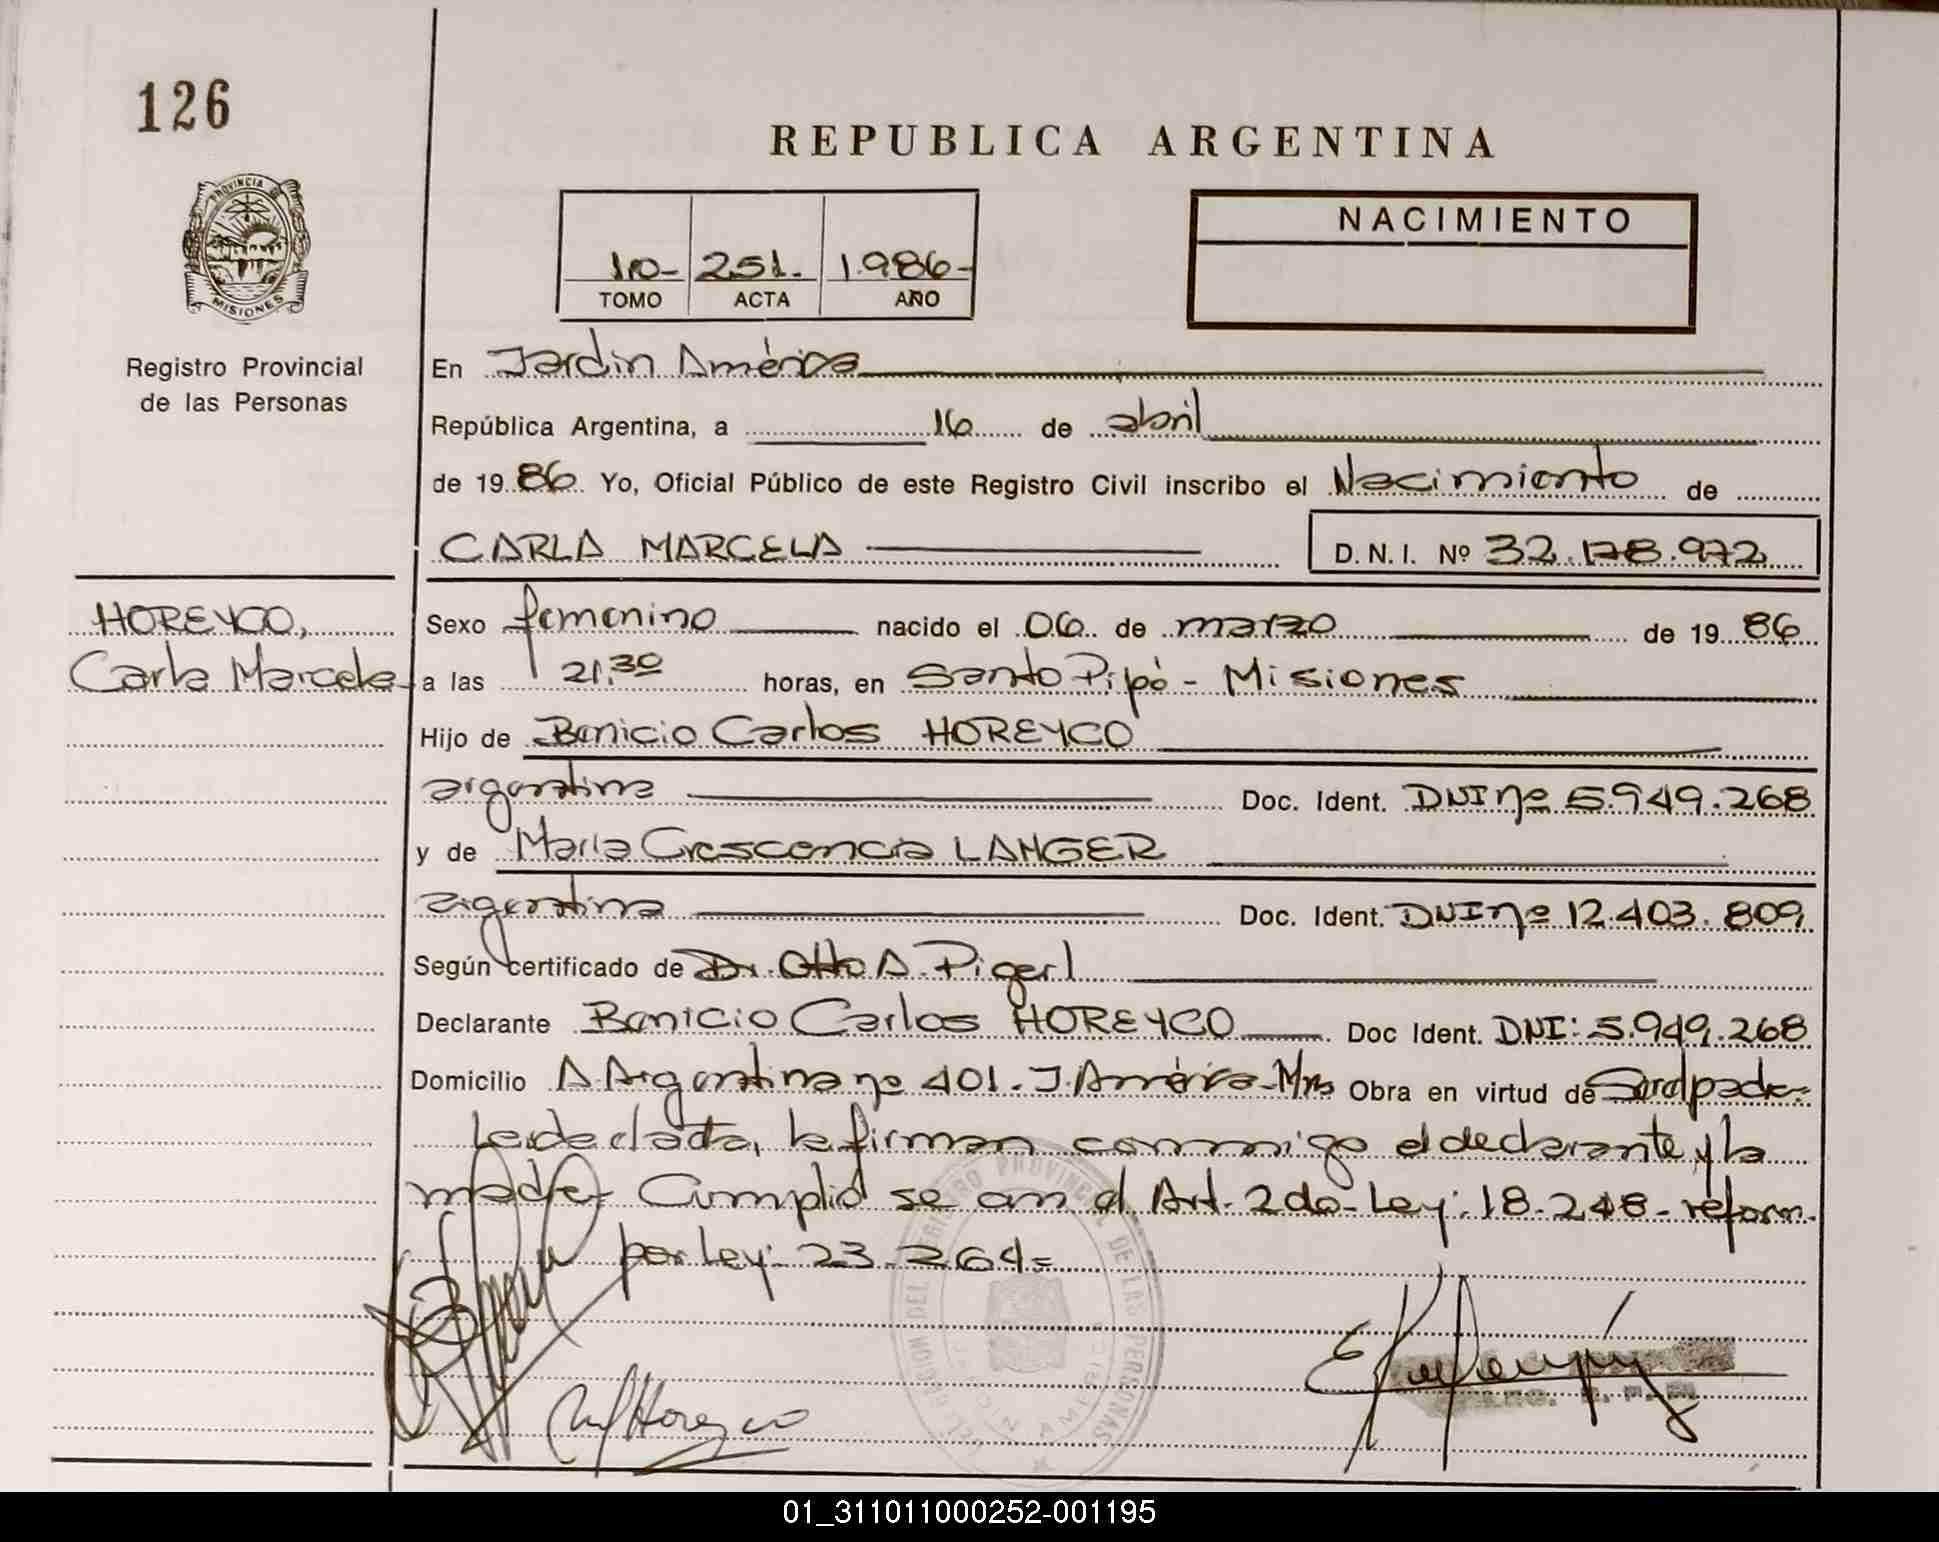 126
REPUBLICA ARGENTINA
PROVINCIA DE
MISIONES
Registro Provincial
de las Personas
10- 251. 1.986-
TOMO ACTA AÑO
NACIMIENTO
En Jardin América
República Argentina, a 16 de abril
de 19 86 Yo, Oficial Público de este Registro Civil inscribo el Nacimiento de
CARLA MARCELA D.N.I. Nº 32.178.972
HOREYCO,
Carla Marcela
Sexo femenino nacido el 06 de marzo de 19 86
a las 21,30 horas, en Santo Pipó - Misiones
Hijo de Benicio Carlos HOREYCO
argentina Doc. Ident. DNI nº 5.949.268
y de Maria Crescencia LANGER
argentina Doc. Ident. DNI nº 12.403.809
Según certificado de Dr. Otto A. Pigerl
Declarante Benicio Carlos HOREYCO Doc Ident. DNI: 5.949.268
Domicilio A. Argentina nº 401. J. América - Mnes Obra en virtud de Ser el padre-
Leida el acta, la firman conmigo el declarante y la
madre- Cumplió se con el Art. 2do- Ley: 18.248- reform.
por Ley: 23.264=
DEL REGISTRO PROVINCIAL DE LAS PERSONAS
JARDIN AMERICA
Horeyco
01_311011000252-001195